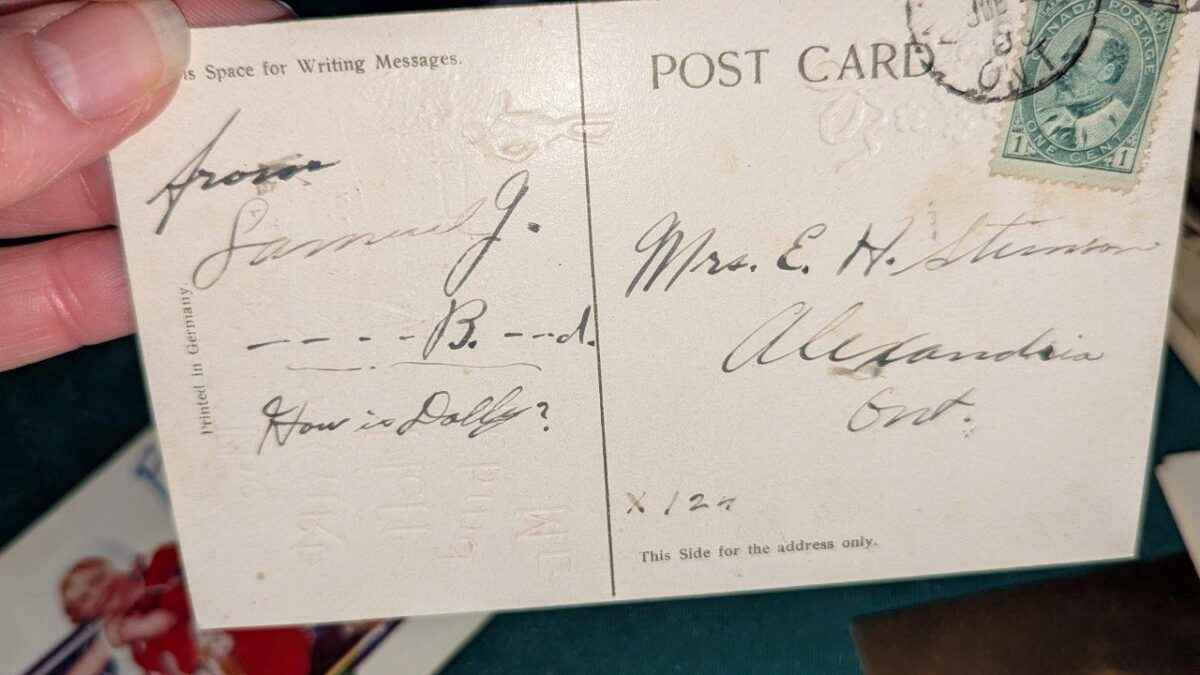 is Space for Writing Messages.
POST CARD
from
Samuel J.
- - - - B. - - d.
How is Dolly?
Printed in Germany.
ONT.
CANADA POSTAGE
1 ONE CENT 1
Mrs. E. H. Stimson
Alexandria
Ont.
X 12
This Side for the address only.